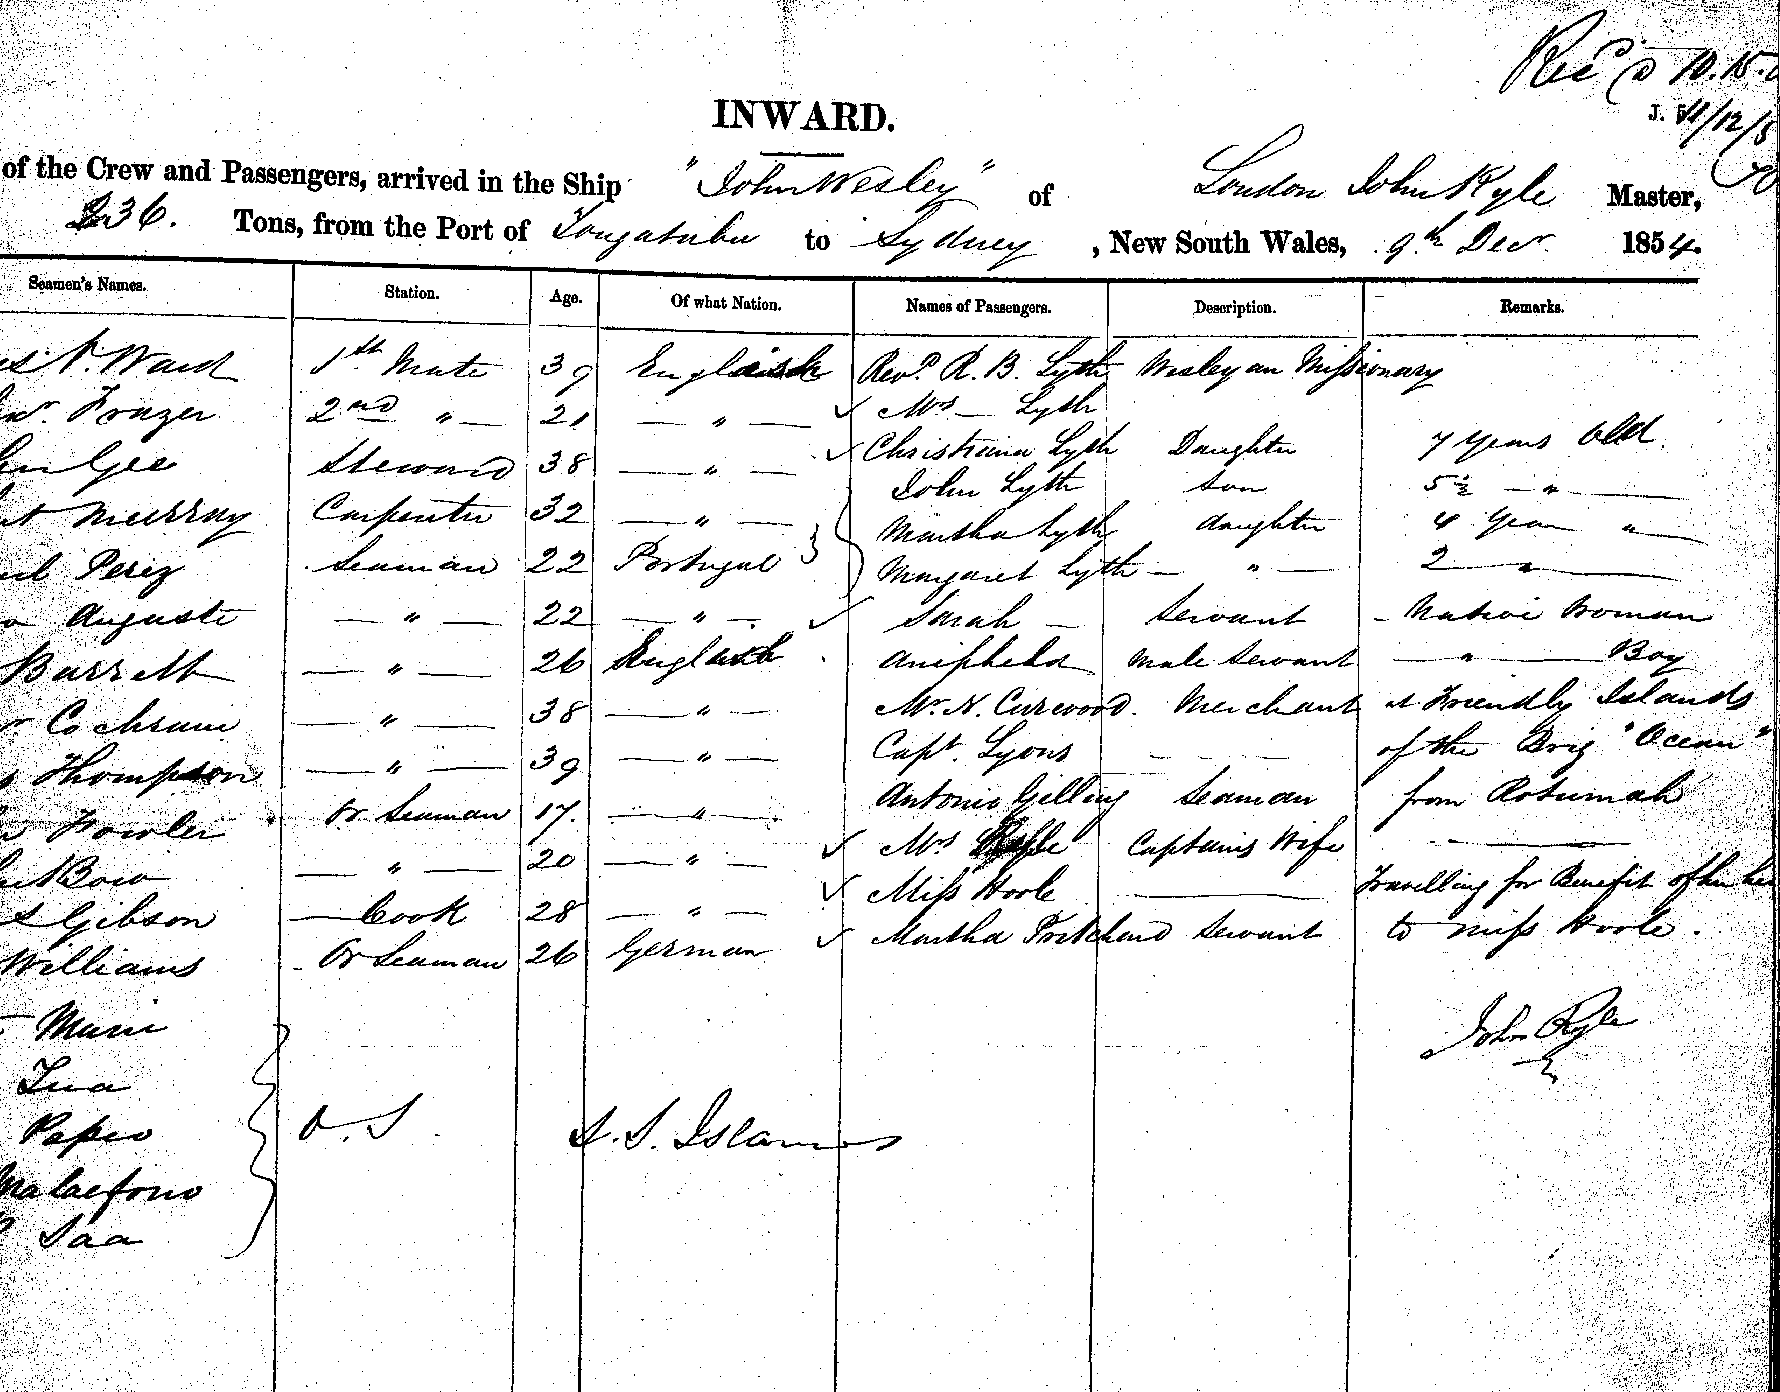 Rec'd @ 10.15
J. S. 11/12/5
INWARD.
of the Crew and Passengers, arrived in the Ship "John Wesley" of London John Ryle Master,
236. Tons, from the Port of Tongatabu to Sydney, New South Wales, 9th Decr. 1854.
Seamen's Names. Station. Age. Of what Nation. Names of Passengers. Description. Remarks.
Ward 1st Mate 39 English Revd. R. B. Lyth Wesleyan Missionary
Frazer 2nd " 21 " Mrs Lyth
Gee Steward 38 " Christiana Lyth Daughter 7 Years Old
Murray Carpenter 32 " John Lyth Son 5½ "
Perez Seaman 22 Portugal Martha Lyth daughter 4 Years "
Auguste " 22 " Margaret Lyth " 2 "
Barrett " 26 English Sarah Servant Native Woman
Cochrane " 38 " male Servant " Boy
Thompson " 39 " Mr. N. Curwood. Merchant at Friendly Islands
Fowler Or Seaman 17. " Capt. Lyons of the Brig "Ocean"
Bow " 20 " Antonio Gelling Seaman from Rotumah
Gibson Cook 28 " Mrs Ryle Captains Wife
Williams Or Seaman 26 German Miss Hoole Travelling for Benefit of her
Martha Pritchard Servant to Miss Hoole.
John Ryle
Muni
Tua
Papeo O. S S. S. Islands
Malaefono
Saa